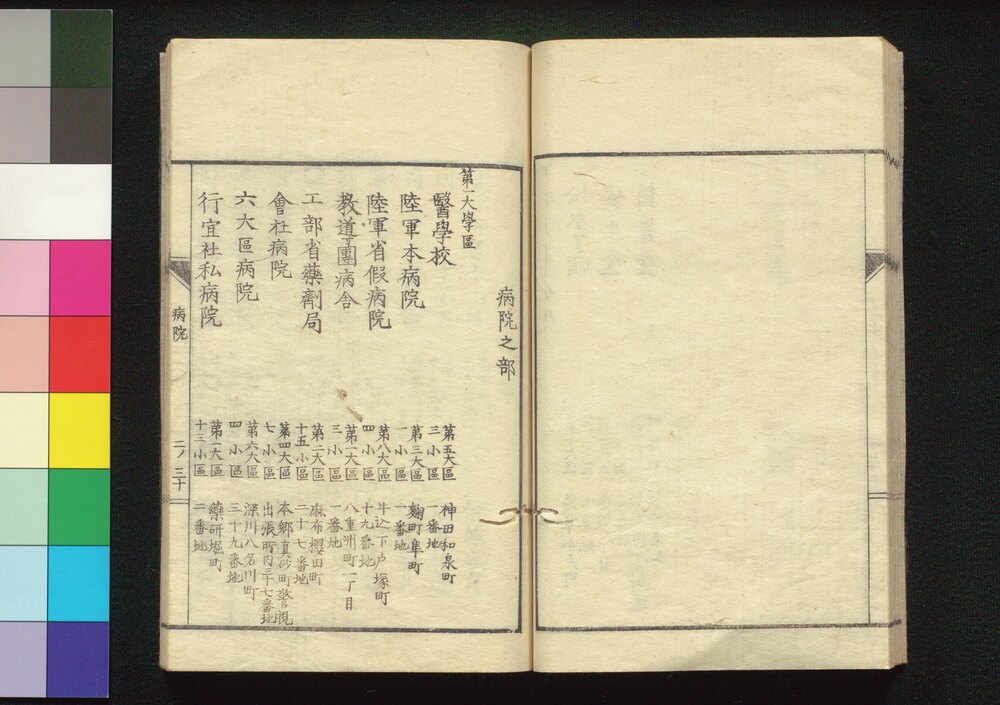 病院之部
第一大學區
醫學校
第五大區
三小區
神田和泉町
一番地
陸軍本病院
第三大區
一小區
麹町隼町
一番地
陸軍省假病院
第八大區
四小區
牛込下戸塚町
十九番地
教導團病舎
第一大區
三小區
八重洲町一丁目
一番地
工部省藥劑局
第二大區
十五小區
麻布櫻田町
二十七番地
會社病院
第四大區
七小區
本郷真砂町警視
出張所内三十七番地
六大區病院
第六大區
四小區
深川八名川町
三十九番地
行宜社私病院
第一大區
十三小區
藥研堀町
二番地
病院
二ノ三十